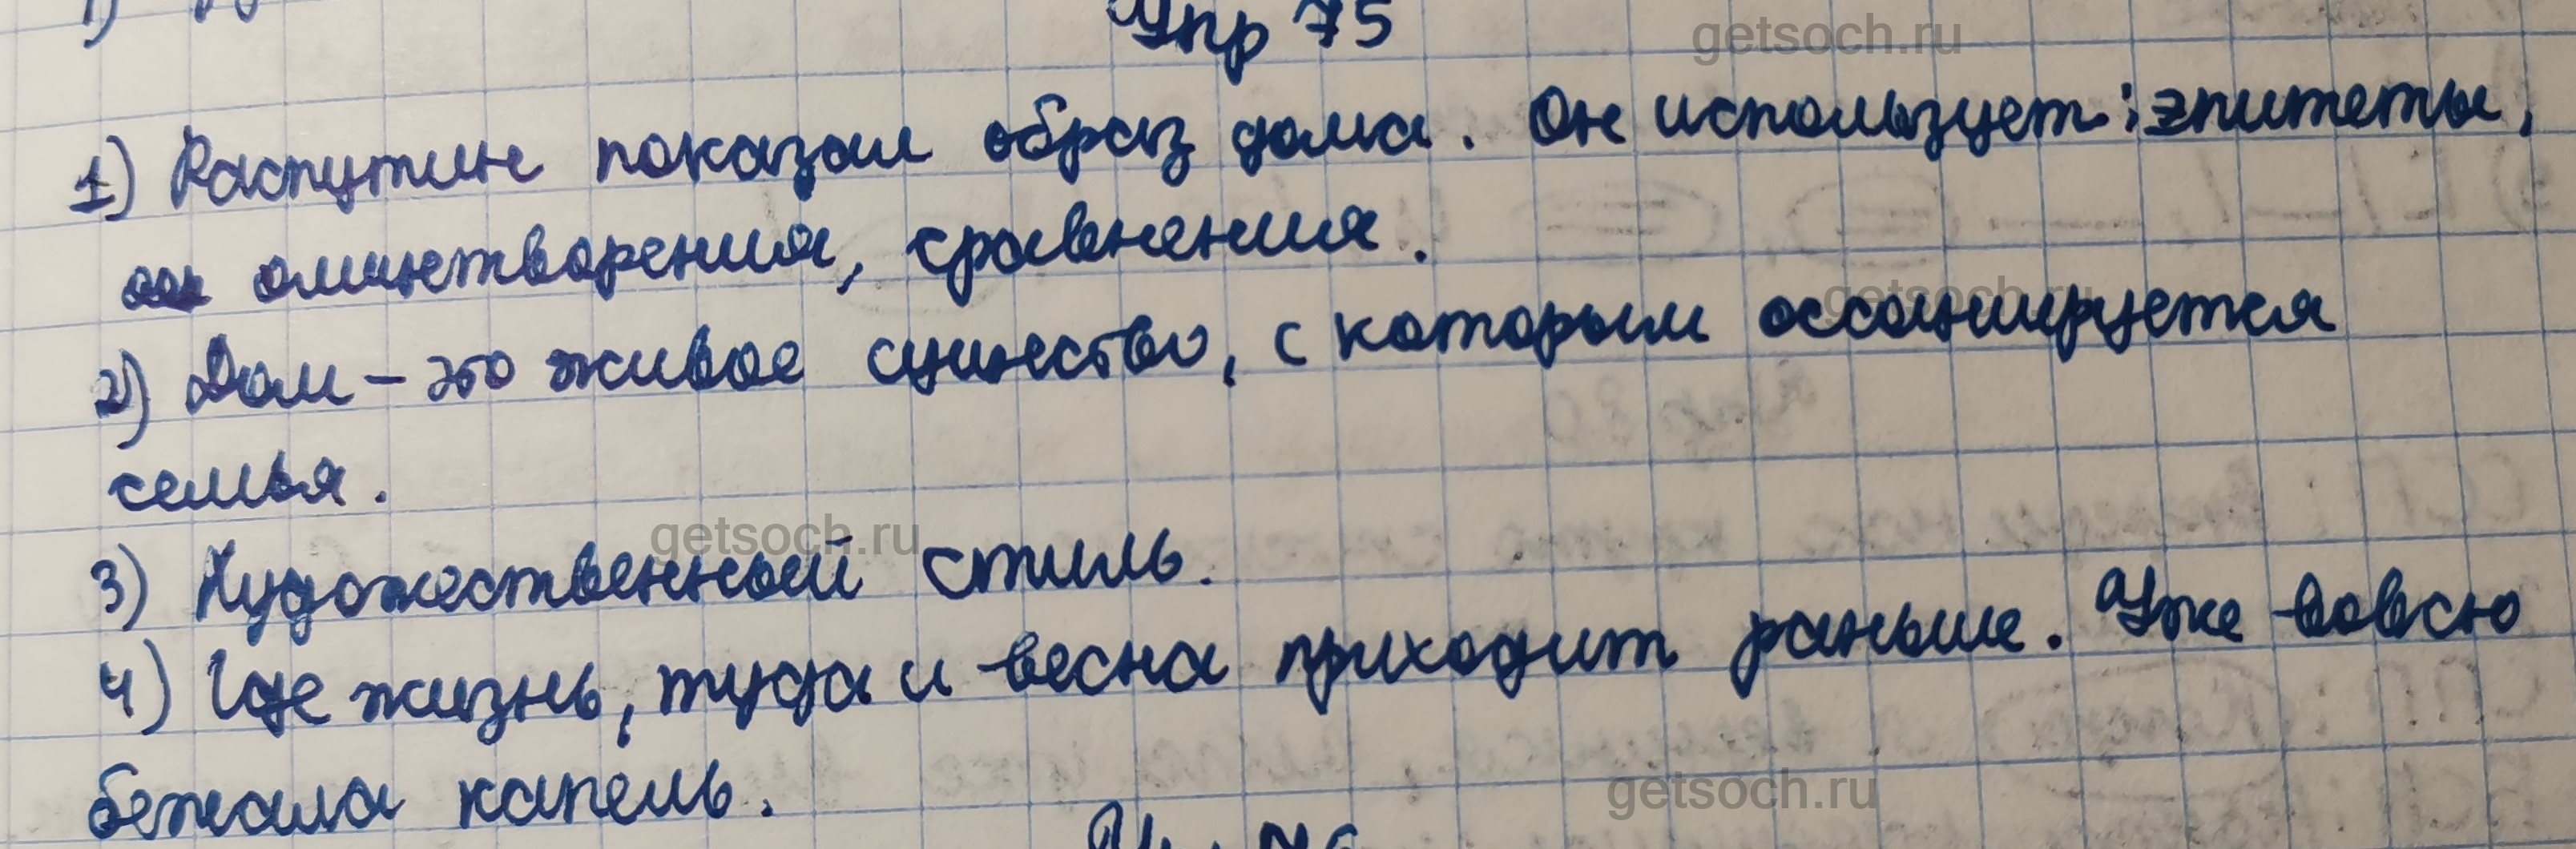 Упр 75
1) Распутин показал образ дома. Он использует: эпитеты,
олицетворения, сравнения.
2) Дом - это живое существо, с которым ассоциируется
семья.
3) Художественный стиль.
4) Где жизнь, туда и весна приходит раньше. Уже вовсю
бежала капель.
getsoch.ru
getsoch.ru
getsoch.ru
getsoch.ru